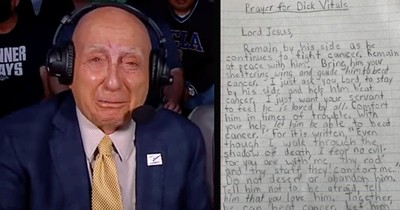 NNER
DAYS
Prayer for Dick Vitale
Lord Jesus,
Remain by his side as he
continues to fight cancer. Remain
at peace with him. Bring him your
sheltering wing, and guide him to beat
cancer. I just ask you Lord to stay
by his side and help him beat
cancer. I just want your servant
to feel he is loved by all. Comfort
him in times of trouble. With
your help, let him be able to beat
cancer. For it is written, "Even
though I walk through the
shadow of death, I fear no evil-
for you are with me, thy rod
and thy staff, they comfort me.
Do not desert or abandon him.
Tell him not to be afraid, tell
him that you love him. Together,
he can beat cancer. Let him